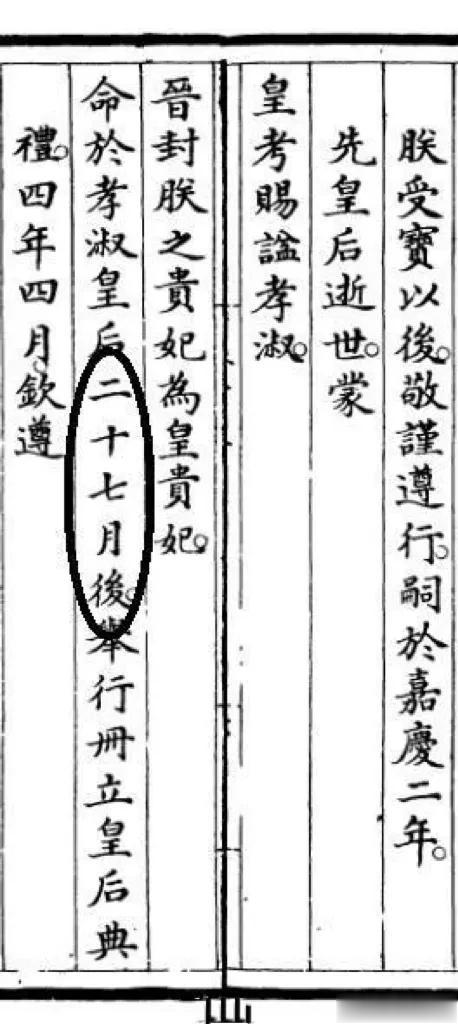 朕受寶以後。敬謹遵行。嗣於嘉慶二年。
先皇后逝世。蒙
皇考賜諡孝淑。
晉封朕之貴妃為皇貴妃。
命於孝淑皇后二十七月後。舉行冊立皇后典
禮。四年四月。欽遵